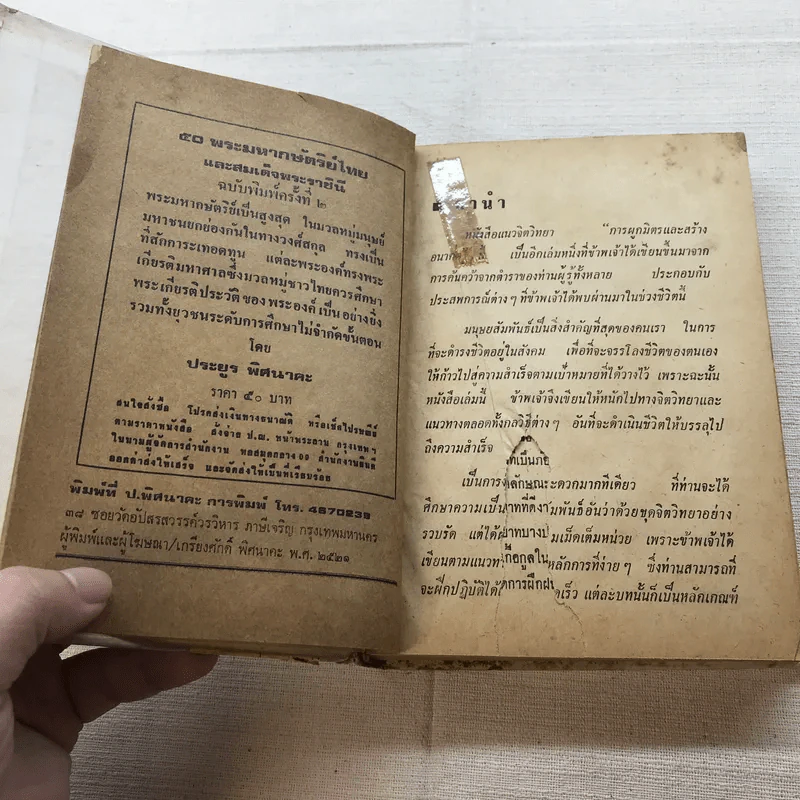 ๕๐ พระมหากษัตริย์ไทย
และสมเด็จพระราชินี
ฉบับพิมพ์ครั้งที่ ๒
พระมหากษัตริย์เป็นสูงสุด ในมวลหมู่มนุษย์
มหาชนยกย่องกันในทางวงศ์สกุล ทรงเป็น
ที่สักการะเทอดทูน แต่ละพระองค์ทรงพระ
เกียรติมหาศาลซึ่งมวลหมู่ชาวไทยควรศึกษา
พระเกียรติประวัติของพระองค์เป็นอย่างยิ่ง
รวมทั้งยุวชนระดับการศึกษาไม่จำกัดขั้นตอน
โดย
ประยูร พิศนาคะ
ราคา ๕๐ บาท
สนใจสั่งซื้อ โปรดส่งเงินทางธนาณัติ หรือเช็คไปรษณีย์
ตามราคาหนังสือ สั่งจ่าย ป.ณ. หน้าพระลาน กรุงเทพฯ
ในนามผู้จัดการสำนักงาน หอสมุดกลาง 09 สำนักงานยินดี
ออกค่าส่งให้เสร็จ และจัดส่งให้เป็นที่เรียบร้อย
พิมพ์ที่ ป.พิศนาคะ การพิมพ์ โทร. 4670239
๓๘ ซอยวัดอัปสรสวรรค์วรวิหาร ภาษีเจริญ กรุงเทพมหานคร
ผู้พิมพ์และผู้โฆษณา/เกรียงศักดิ์ พิศนาคะ พ.ศ. ๒๕๒๑
คำนำ
หนังสือแนวจิตวิทยา "การผูกมิตรและสร้าง
เป็นอีกเล่มหนึ่งที่ข้าพเจ้าได้เขียนขึ้นมาจาก
การค้นคว้าจากตำราของท่านผู้รู้ทั้งหลาย ประกอบกับ
ประสพการณ์ต่างๆ ที่ข้าพเจ้าได้พบผ่านมาในช่วงชีวิตนี้
มนุษยสัมพันธ์เป็นสิ่งสำคัญที่สุดของคนเรา ในการ
ที่จะดำรงชีวิตอยู่ในสังคม เพื่อที่จะจรรโลงชีวิตของตนเอง
ให้ก้าวไปสู่ความสำเร็จตามเป้าหมายที่ได้วางไว้ เพราะฉะนั้น
หนังสือเล่มนี้ ข้าพเจ้าจึงเขียนให้หนักไปทางจิตวิทยาและ
แนวทางตลอดทั้งกลวิธีต่างๆ อันที่จะดำเนินชีวิตให้บรรลุไป
ถึงความสำเร็จ
ที่เป็นภย
เป็นการ ลักษณะ ะดวกมากทีเดียว ที่ท่านจะได้
ศึกษาความเป็น าทที่ดีงา มพันธ์อันว่าด้วยขุดจิตวิทยาอย่าง
รวบรัด แต่ได้ าทบางป มเม็ดเต็มหน่วย เพราะข้าพเจ้าได้
เขียนตามแนวท กื้อกูลใน หลักการที่ง่ายๆ ซึ่งท่านสามารถที่
จะฝึกปฏิบัติได้ การฝึกฝน ดเร็ว แต่ละบทนั้นก็เป็นหลักเกณฑ์